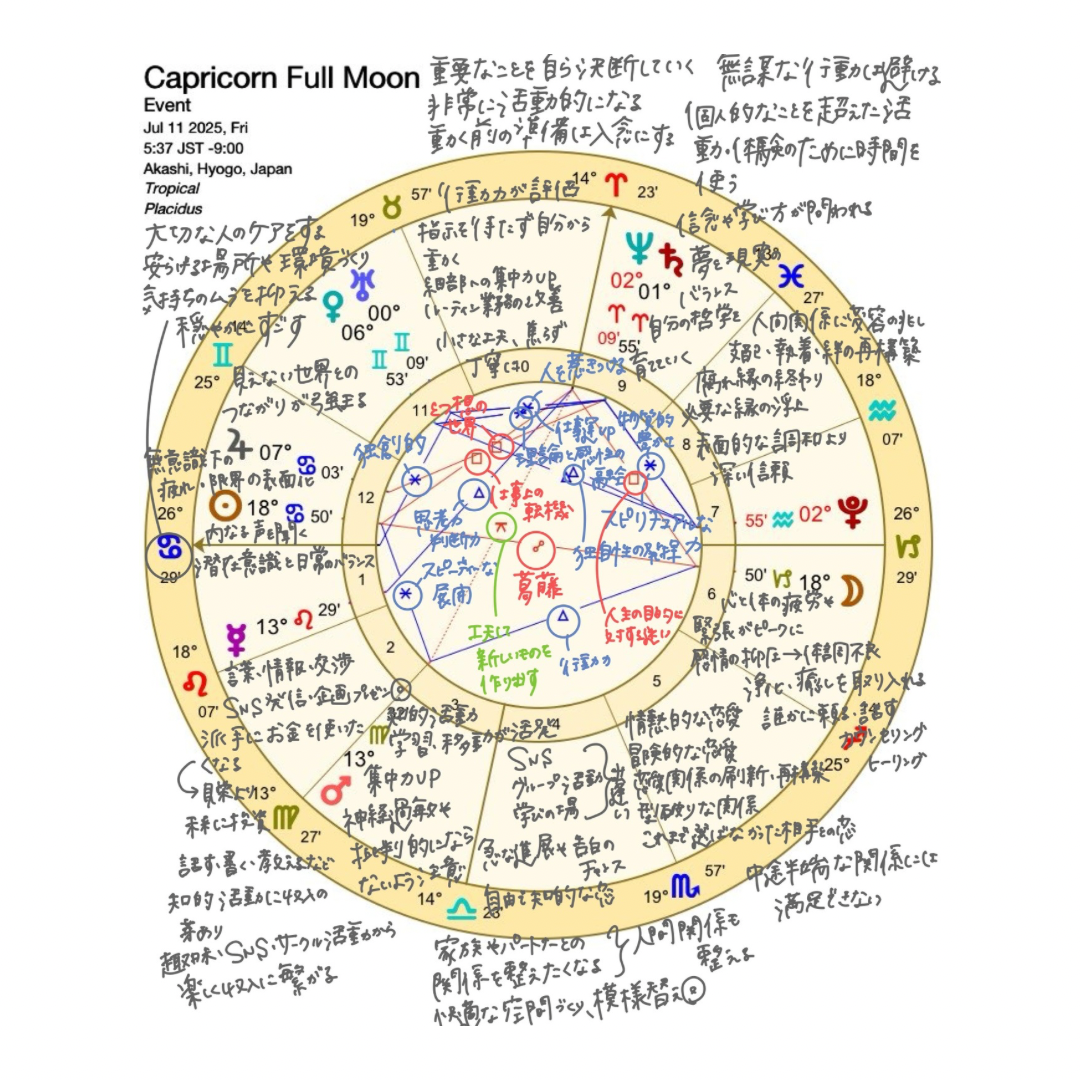 Capricorn Full Moon
Event
Jul 11 2025, Fri
5:37 JST -9:00
Akashi, Hyogo, Japan
Tropical
Placidus
重要なことを自ら決断していく
非常に活動的になる
動く前の準備は入念にする
無謀な行動は避ける
個人的なことを超えた活
動・体験のために時間を
使う
信念や学び方が問われる
大切な人のケアをする
安らげる場所や環境づくり
気持ちのムラを抑える
穏やかにすごす
19° ♉ 57'
行動力が評価
14° ♈ 23'
指示を待たず自分から
動く
細部への集中力UP
ルーティン業務の改善
小さな工夫、焦らず
丁寧に
夢と現実の
バランス
自分の哲学を
育てていく
♆ ♄
02° 01°
♈ ♈
09' 55'
♓
27'
人間関係に変容の兆し
支配・執着・絆の再構築
腐れ縁の終わり
必要な縁の浮上
表面的な調和より
深い信頼
18°
♒
07'
♀ ♅
06° 00°
♊ ♊
53' 09'
♊
25°
見えない世界との
つながりが強まる
♃ 07° ♋ 03'
無意識下の
疲れ・限界の表面化
☉ 18° ♋ 50'
内なる声を聞く
潜在意識と日常のバランス
26°
♋
29'
55' ♒ 02° ♇
26°
♑
29'
50' ♑ 18° ☽
心と体の疲労や
緊張がピークに
感情の抑圧→体調不良
浄化、癒しを取り入れる
誰かに頼る・話す
カウンセリング
ヒーリング
☿ 13° ♌ 29'
18°
♌
07'
言葉・情報・交渉
SNS発信・企画プレゼン
派手にお金を使いた
くなる
→見栄より
未来に投資
13°
♍
27'
話す・書く・教えるなど
知的活動に収入の
芽あり
趣味・SNS・サークル活動から
楽しく収入に繋がる
知的活動
学習、移動が活発
♂ 13° ♍
集中力UP
神経過敏や
批判的になら
ないよう注意
14° ♎ 23'
SNS
グループ活動
学びの場
急な進展や告白の
チャンス
自由で知的な恋
家族やパートナーとの
関係を整えたくなる
快適な空間づくり、模様替え
人間関係も
整える
情熱的な恋愛
冒険的な恋愛
恋愛関係の刷新・再構築
型破りな関係
これまで選ばなかった相手との恋
中途半端な関係には
満足できない
19° ♏ 57'
♐
25°
1
2
3
4
5
6
7
8
9
11
12
人を惹きつける
2つ横の
世界
独創的
仕事運UP
理論と感性の
融合
物質的
豊かさ
思考力
判断力
仕事上の
転機
スピリチュアルな
独自性の発揮
スピーディーな
展開
葛藤
工夫して
新しいものを
作り出す
行動力
人生の目的に
対する迷い